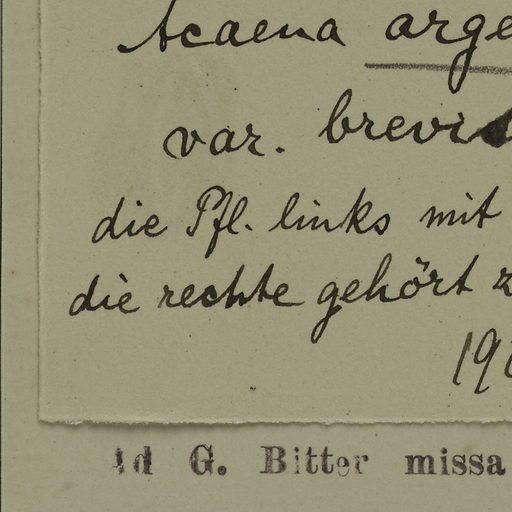 Acaena arge
var. brevis
die Pfl. links mit
die rechte gehört z
19
Ad G. Bitter missa